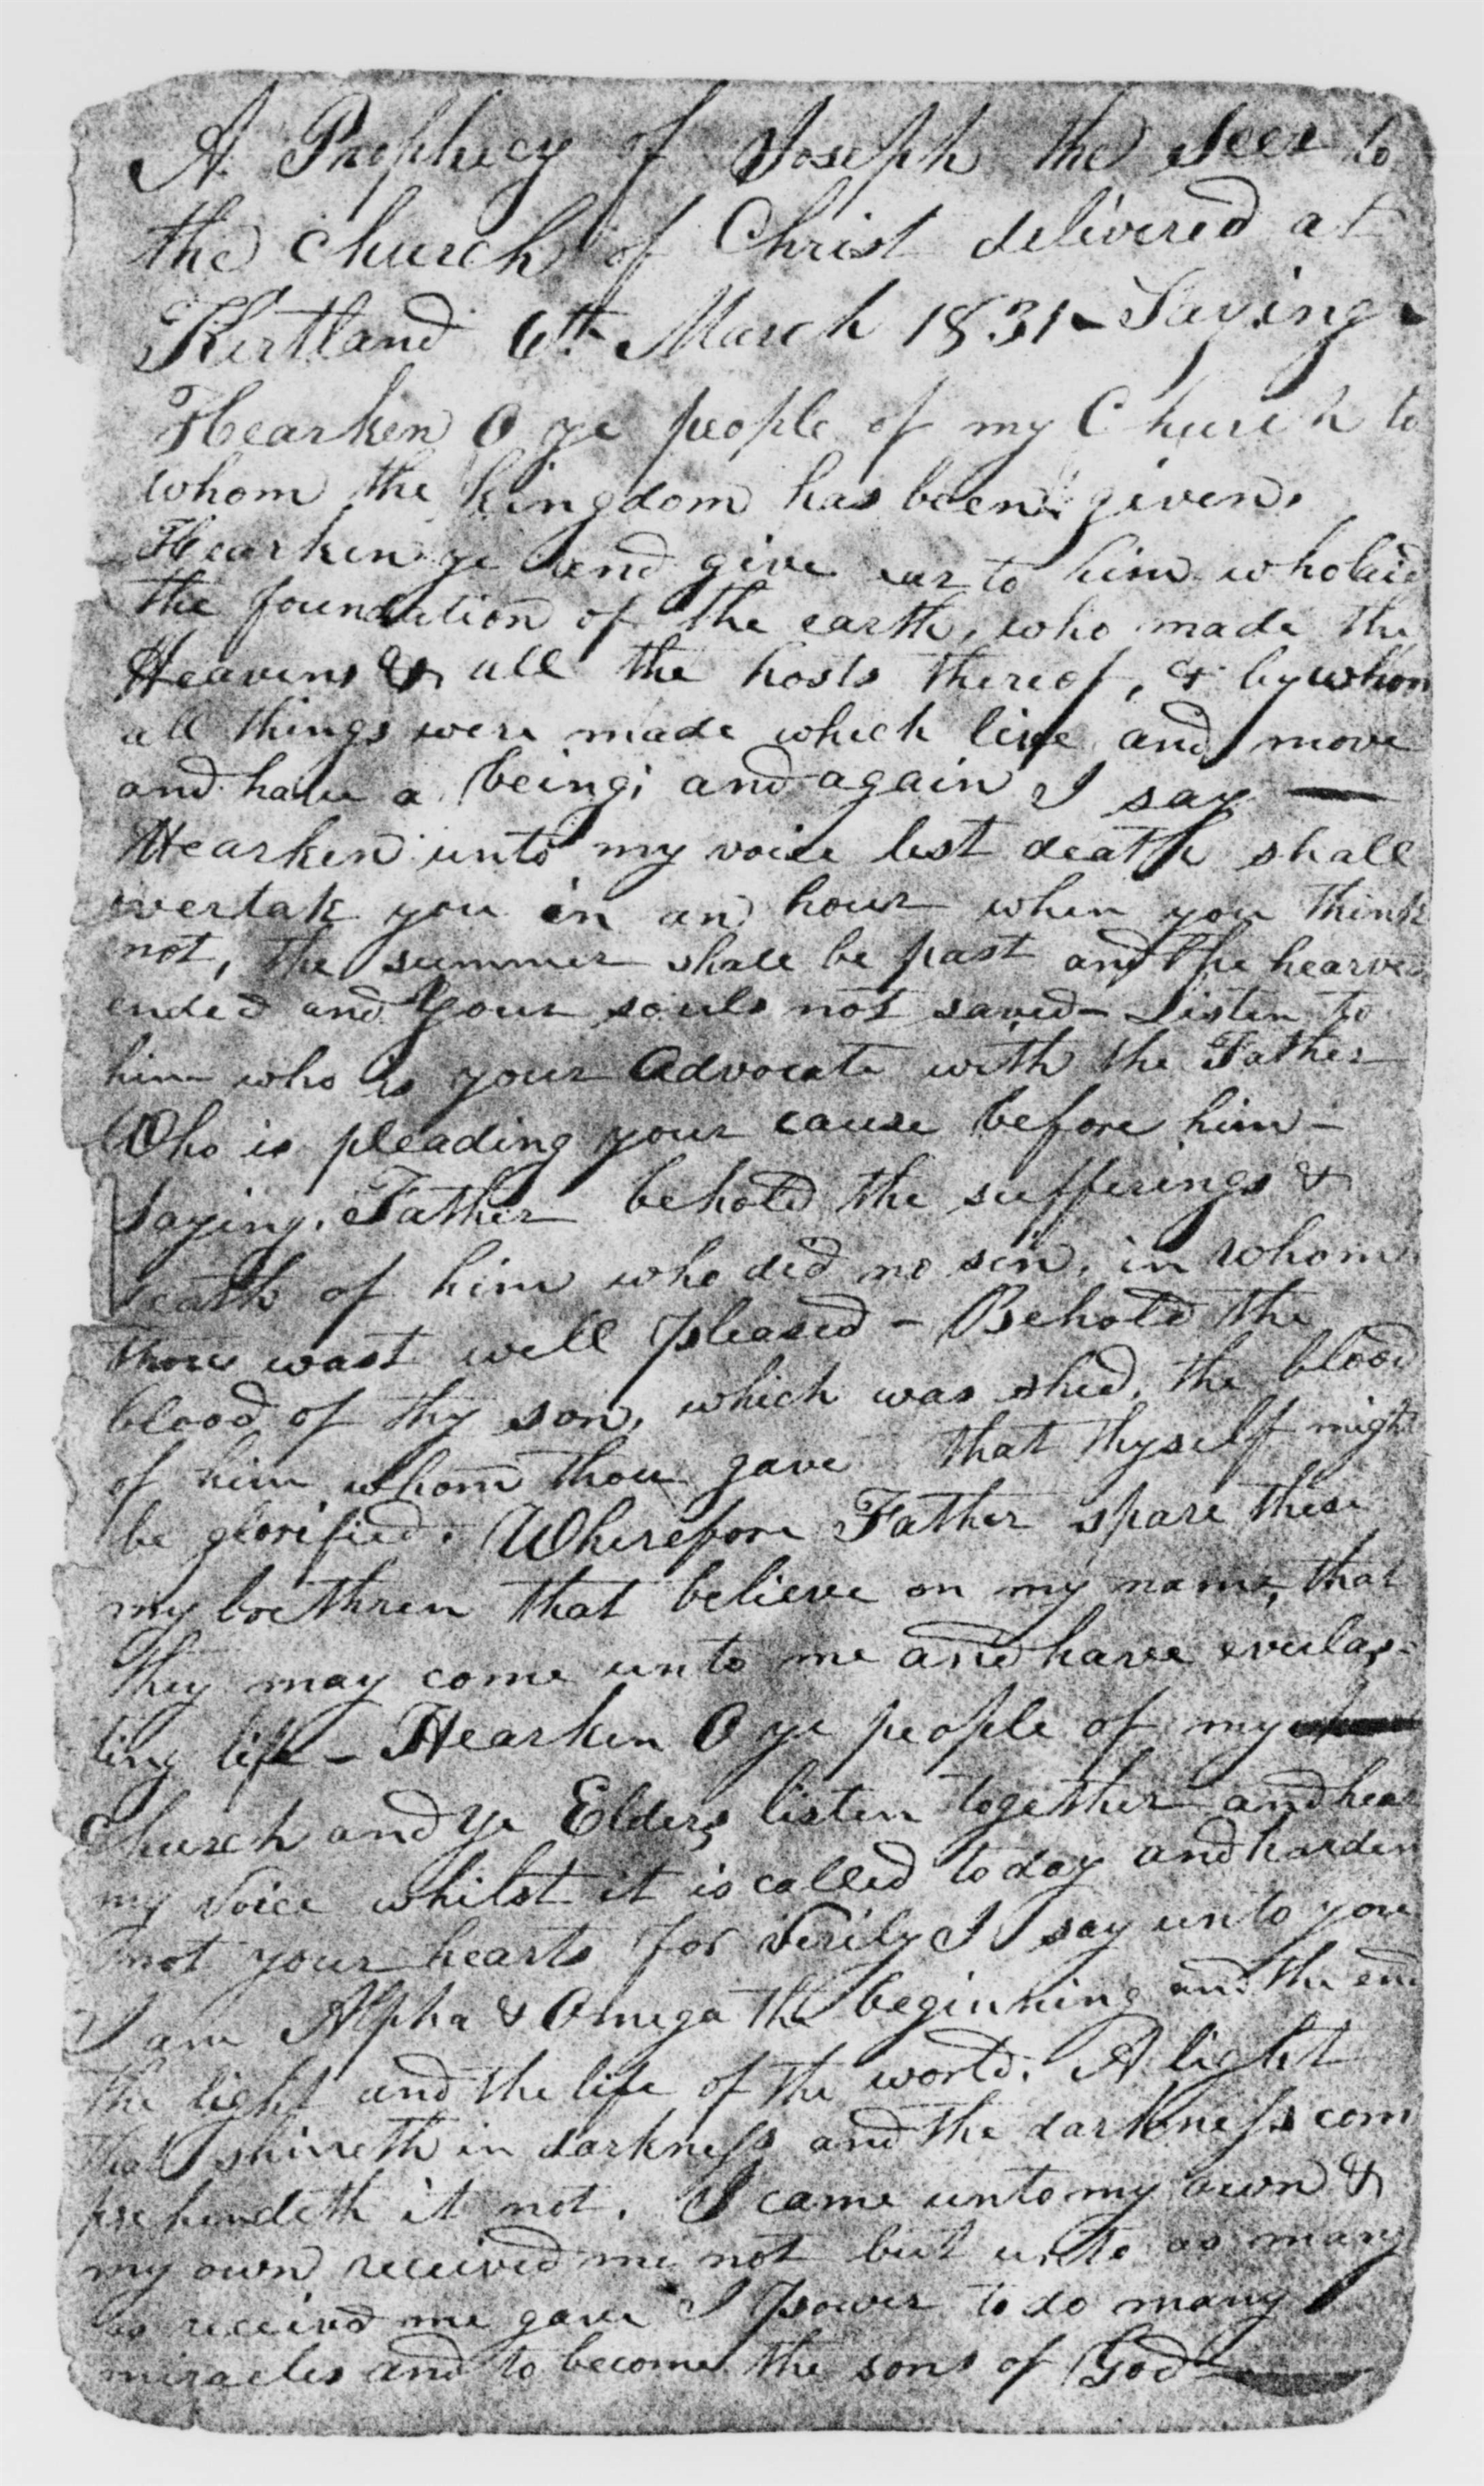 A Prophecy of Joseph the Seer to
the church of Christ delivered at
Kirtland 6th March 1831 - Saying
Hearken O ye people of my Church to
whom the kingdom has been given.
Hearken ye and give ear to him who laid
the foundation of the earth, who made the
Heavens & all the hosts thereof, & by whom
all things were made which live and move
and have a being; and again I say —
Hearken unto my voice lest death shall
overtak you in an hour when you think
not, the summer shall be past and the hearves
ended and your souls not saved - Listen to
him who is your advocate with the Father
Who is pleading your cause before him -
Saying. Father behold the sufferings &
death of him who did no sin, in whom
thou wast well pleased - Behold the
blood of thy son, which was shed, the blood
of him whom thou gave that thyself might
be glorified. Wherefore Father spare these
my brethren that believe on my name, that
they may come unto me and have everlas=
ting life - Hearken O ye people of my
Church and ye Elders listen together and hear
my voice whilst it is called today and harden
not your hearts for verily I say unto you
I am Alpha & Omega the beginning and the end
the light and the life of the world. A light
that shineth in darkness and the darkness com
prehendeth it not. I came unto my own &
my own received me not but unto as many
as received me gave I power to do many
miracles and to become the sons of God —